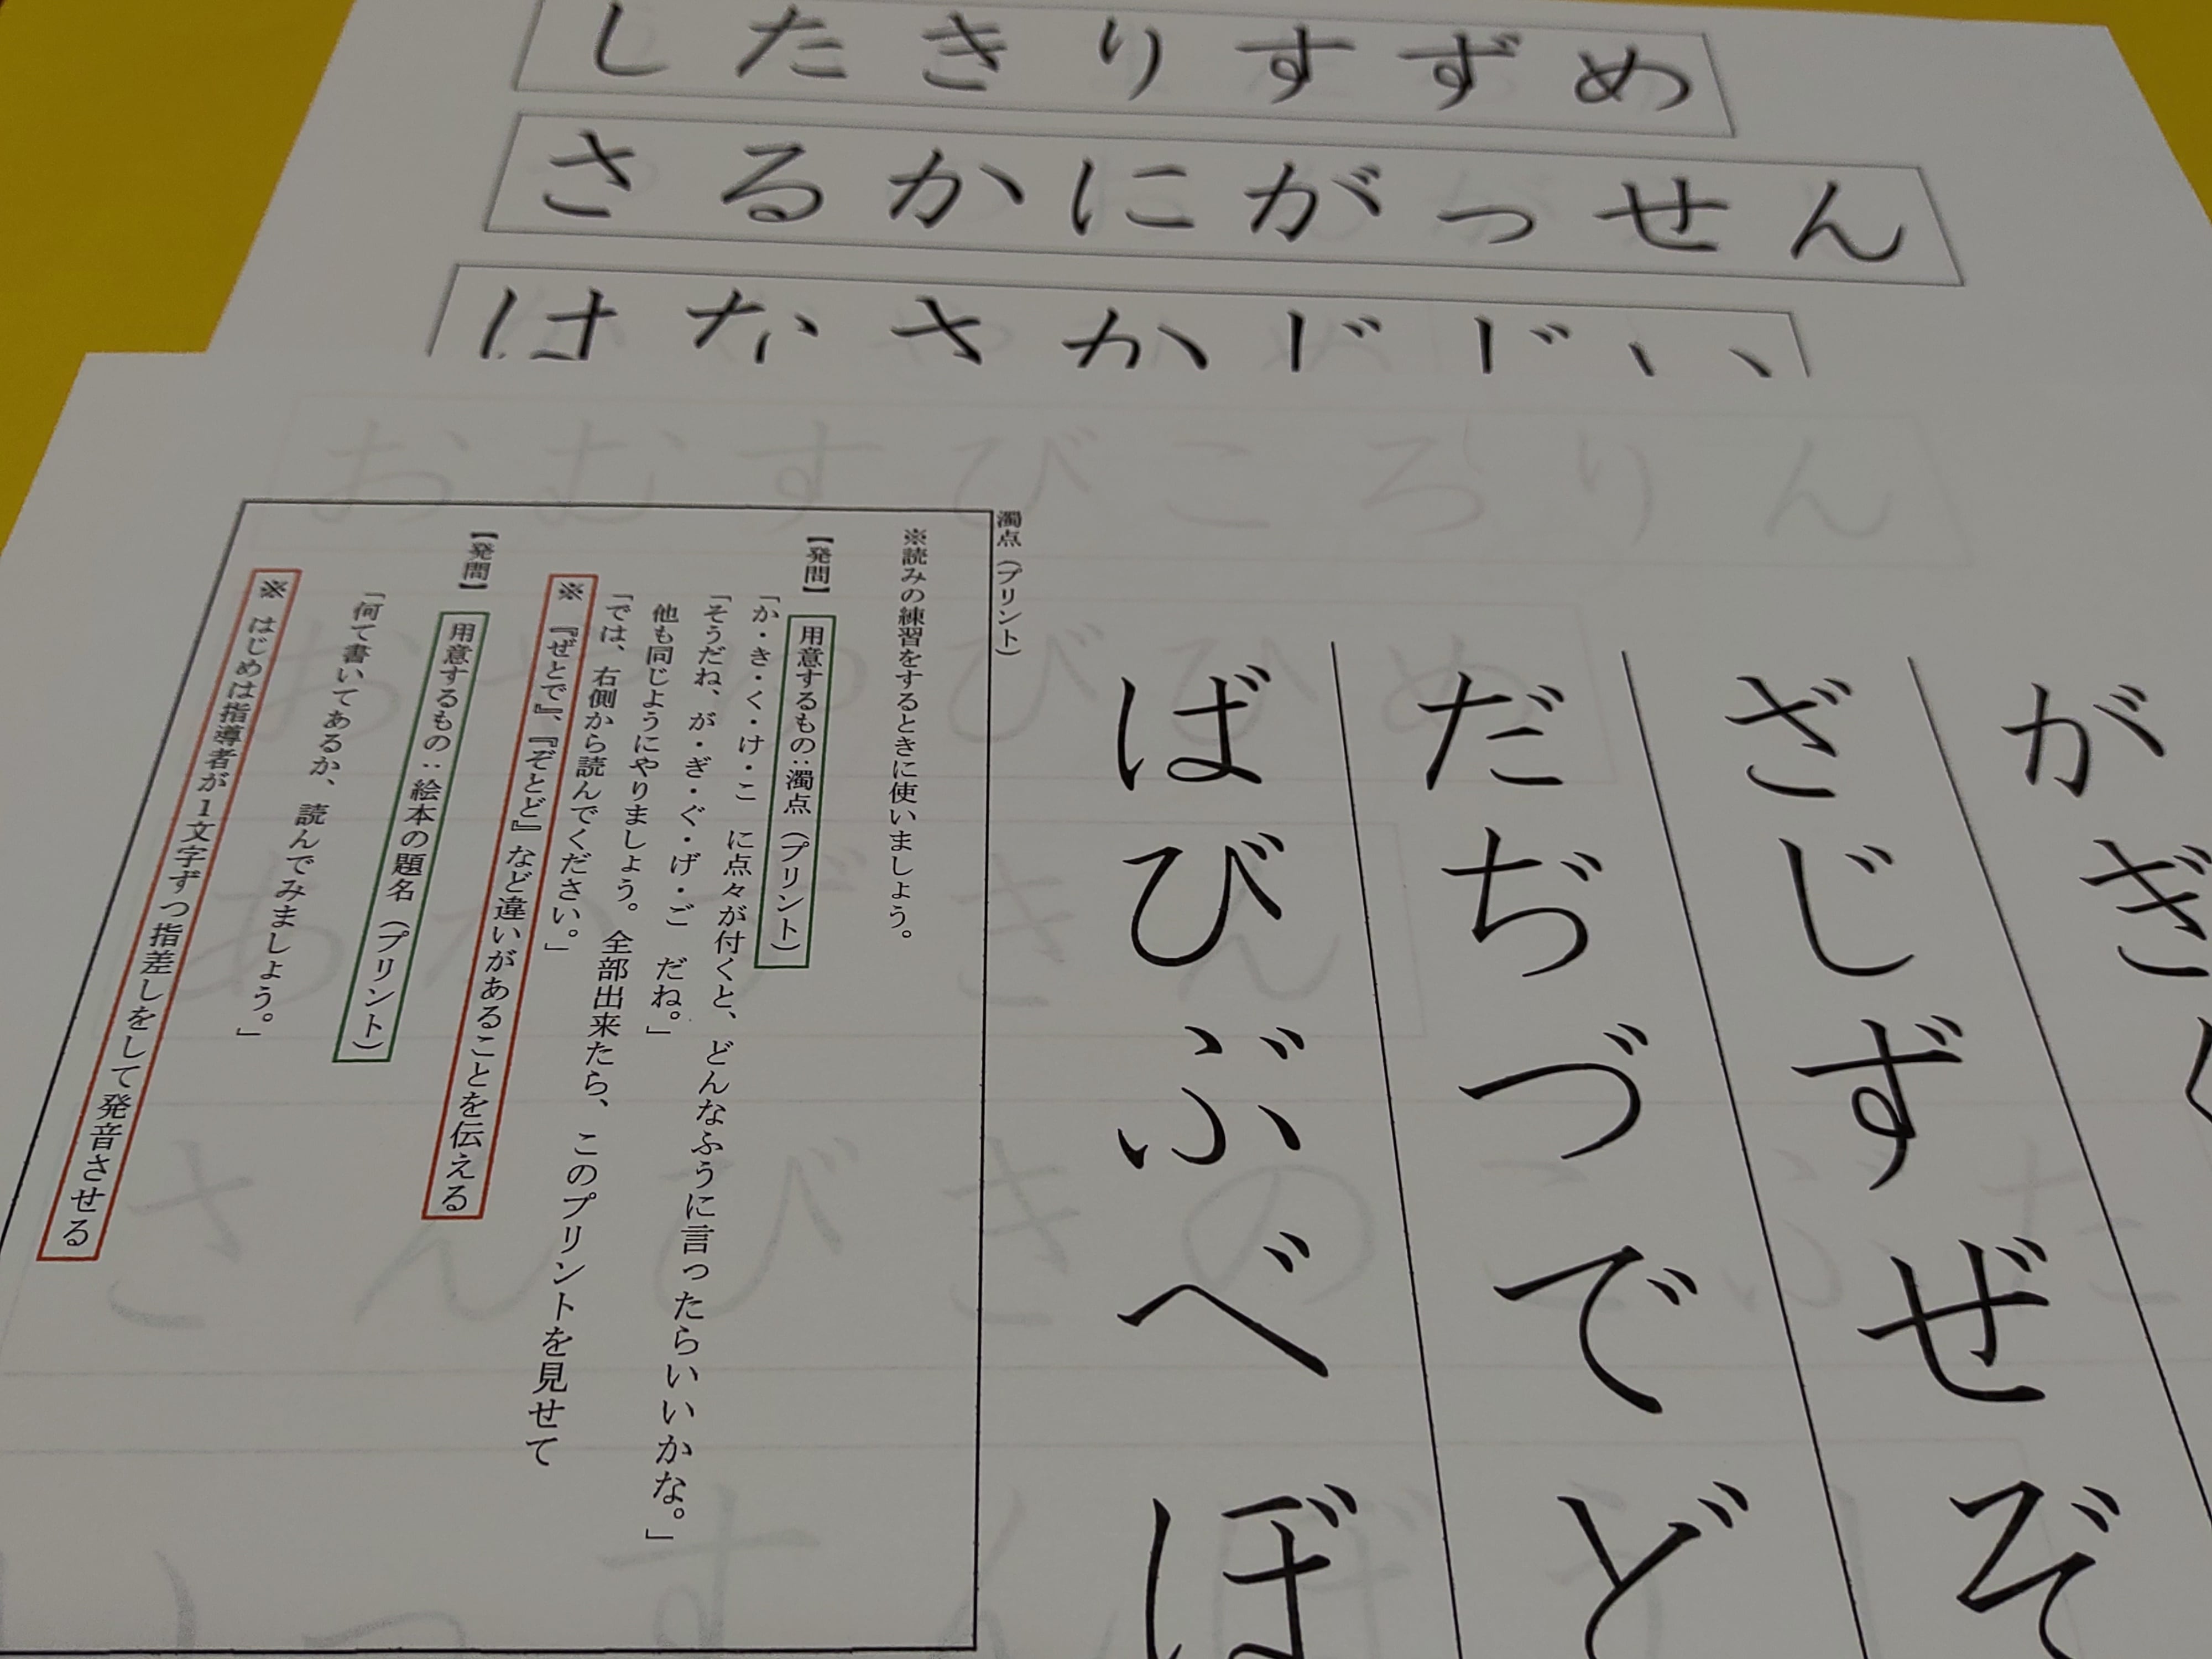 したきりすずめ
さるかにがっせん
はなさかじじい
がぎ
ざじずぜぞ
だぢづでど
ばびぶべぼ
濁点（プリント）
※読みの練習をするときに使いましょう。
【発問】 用意するもの：濁点（プリント）
「か・き・く・け・こ　に点々が付くと、どんなふうに言ったらいいかな。」
「そうだね、が・ぎ・ぐ・げ・ご　だね。」
他も同じようにやりましょう。全部出来たら、このプリントを見せて
「では、右側から読んでください。」
※　『ぜとで』、『ぞとど』など違いがあることを伝える
【発問】 用意するもの：絵本の題名（プリント）
「何て書いてあるか、読んでみましょう。」
※　はじめは指導者が１文字ずつ指差しをして発音させる
おむすびころりん